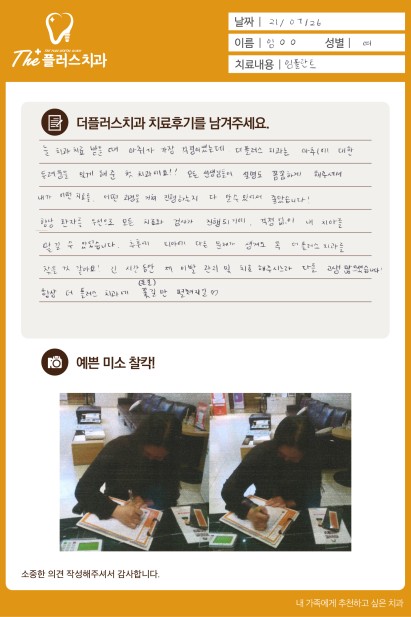 The+ 플러스치과
날짜 | 21/07/26
이름 | 임OO 성별 | 여
치료내용 | 임플란트
더플러스치과 치료후기를 남겨주세요.
늘 치과치료 받을 때 마취가 가장 걱정이었는데 더플러스 치과는 마취에 대한
두려움을 잊게 해준 첫 치과예요!! 모든 선생님들이 설명도 꼼꼼하게 해주시며
내가 어떤 치료를, 어떤 과정을 거쳐 진행하는지 다 알 수 있어서 좋았습니다!
항상 환자를 우선으로 모든 치료와 검사가 진행되기에, 걱정 없이 내 치아를
맡길 수 있었습니다. 추후에 치아에 다른 문제가 생겨도 꼭 더플러스 치과를
찾을 것 같아요! 긴 시간동안 제 이빨 관리 및 치료 해주시느라 다들 고생 많았습니다!
항상 더 플러스 치과에 꽃길만 펼쳐지길
예쁜 미소 찰칵!
소중한 의견 작성해주셔서 감사합니다.
내 가족에게 추천하고 싶은 치과